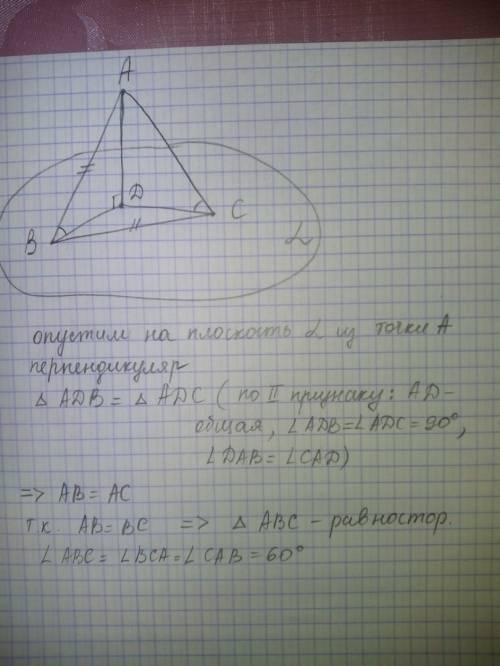 A
D
B
C
α
опустим на плоскость α из точки A
перпендикуляр
△ ADB = △ ADC ( по II признаку: AD-
общая, ∠ADB=∠ADC = 90°,
∠DAB = ∠CAD)
=> AB = AC
т.к. AB = BC => △ ABC - равностор.
∠ ABC = ∠BCA = ∠ CAB = 60°